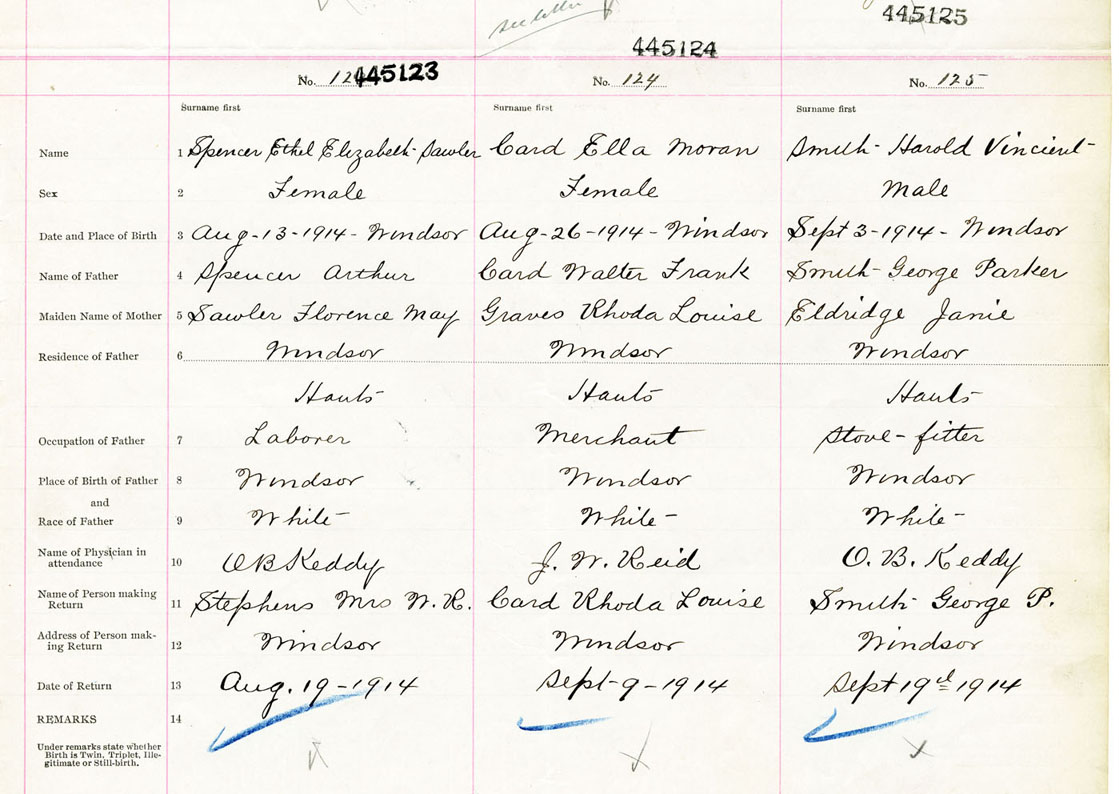 see letter
445125
445124
No. 12 445123 No. 124 No. 125
Surname first Surname first Surname first
Name 1 Spencer Ethel Elizabeth Sawler Card Ella Moran Smith Harold Vincient
Sex 2 Female Female Male
Date and Place of Birth 3 Aug-13-1914- Windsor Aug-26-1914- Windsor Sept 3-1914- Windsor
Name of Father 4 Spencer Arthur Card Walter Frank Smith George Parker
Maiden Name of Mother 5 Sawler Florence May Graves Rhoda Louise Eldridge Janie
Residence of Father 6 Windsor Windsor Windsor
Hants Hants Hants
Occupation of Father 7 Laborer Merchant Stove-fitter
Place of Birth of Father 8 Windsor Windsor Windsor
and
Race of Father 9 White White White
Name of Physician in
attendance 10 O B Keddy J. W. Reid O. B. Keddy
Name of Person making
Return 11 Stephens Mrs W. R. Card Rhoda Louise Smith George P.
Address of Person mak-
ing Return 12 Windsor Windsor Windsor
Date of Return 13 Aug. 19-1914 Sept-9-1914 Sept 19th 1914
REMARKS 14
Under remarks state whether
Birth is Twin, Triplet, Ille-
gitimate or Still-birth.